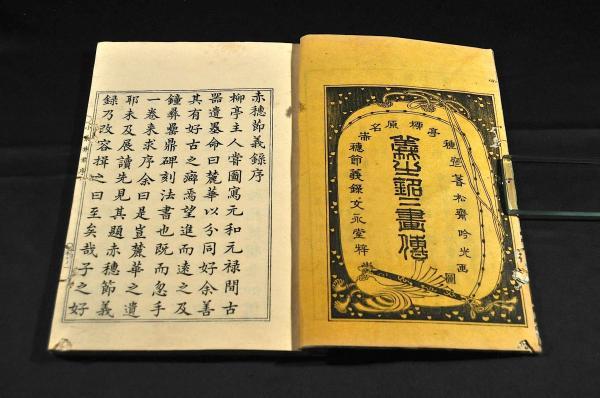 柳亭種彦著 松齋吟光画圖
義士銘々畫傳
原名赤穗節義錄 文永堂梓
赤穗節義錄序
柳亭主人嘗圖寫元和元禄間古
器遺墨命曰麓華以分同好余善
其有好古之癖焉望進而遠之及
鐘彝罍鼎碑刻法書也既而忽手
一卷来求序余曰是豈麓華之遺
耶未及展讀先見其題赤穗節義
録乃改容揖之曰至矣哉子之好